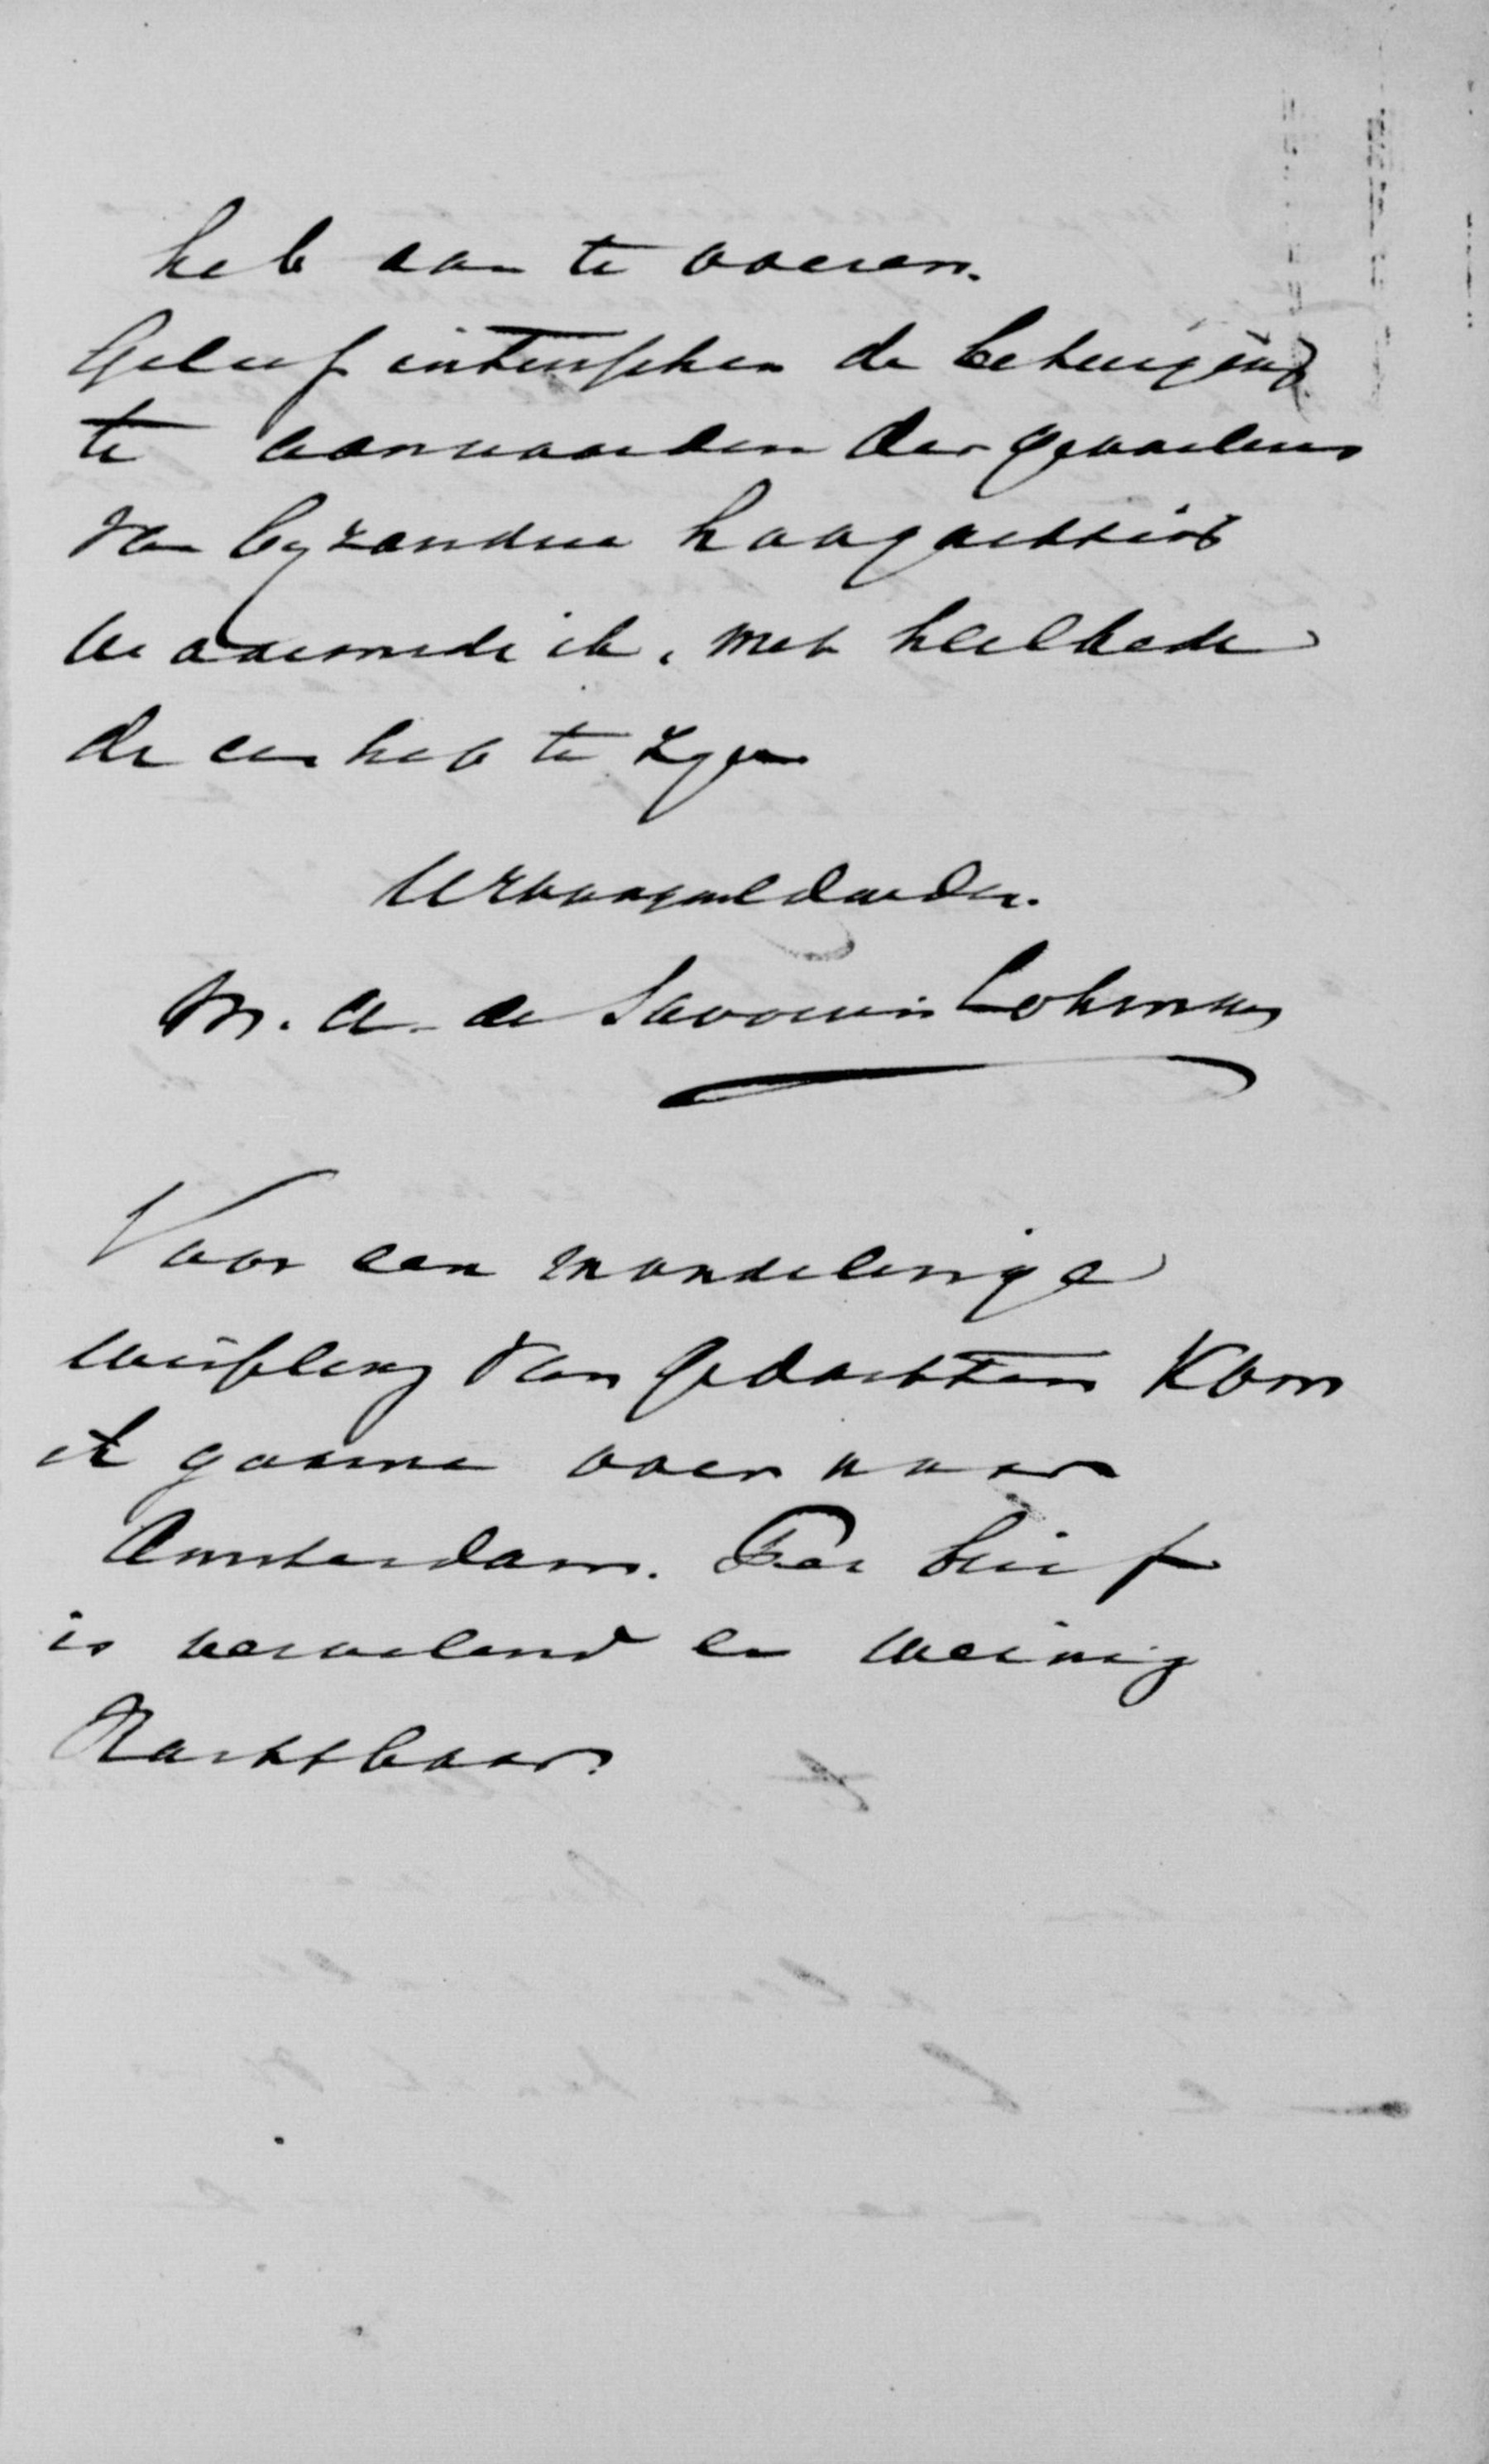 heb aan te voeren.
Gelief intusschen de betuiging
te aanvaarden der gevoelens
van byzondere hoogachting
waarmede ik, met heilbede
de eer heb te zyn
UEd
M. A. de Savornin Lohman
Voor een mondelinge
wisseling van gedachten kom
ik gaarne over naar
Amsterdam. Een brief
is vervelend en weinig
vruchtbaar.